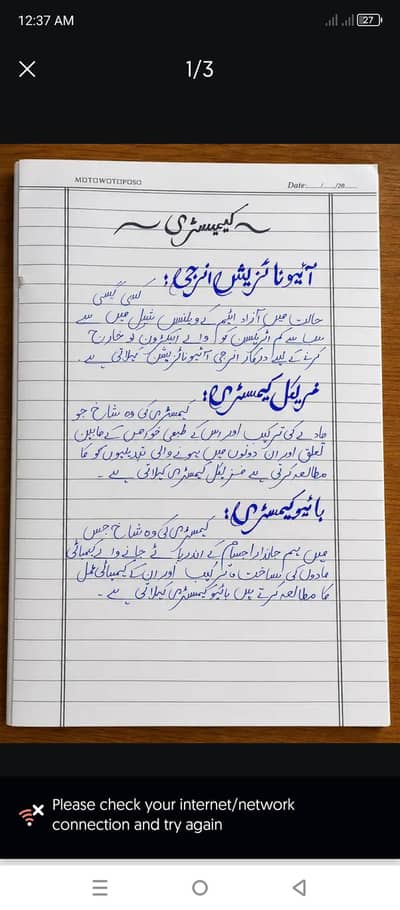 12:37 AM
27
1/3
MOTOWOTOPOSO
Date....../....../20......
کیمیسٹری
آئیونائزیشن انرجی:
کسی گیسی
حالت میں آزاد ایٹم کے ویلنس شیل میں سے
سب سے کم اٹریکشن والے الیکٹرون کو خارج
کرنے کے لیے درکار انرجی آئیونائزیشن کہلاتی ہے۔
فزیکل کیمسٹری:
کیمسٹری کی وہ شاخ جو
مادے کی ترکیب اور اس کے طبعی خواص کے مابین
تعلق اور ان دونوں میں ہونے والی تبدیلیوں کو کا
مطالعہ کرتی ہے فزیکل کیمسٹری کہلاتی ہے۔
بائیو کیمسٹری:
کیمسٹری کی وہ شاخ جس
میں ہم جاندار اجسام کے اندر پائے جانے والے کیمیائی
مادوں کی ساخت، ترکیب اور ان کے کیمیائی عمل
کا مطالعہ کرتے ہیں بائیو کیمسٹری کہلاتی ہے۔
Please check your internet/network
connection and try again